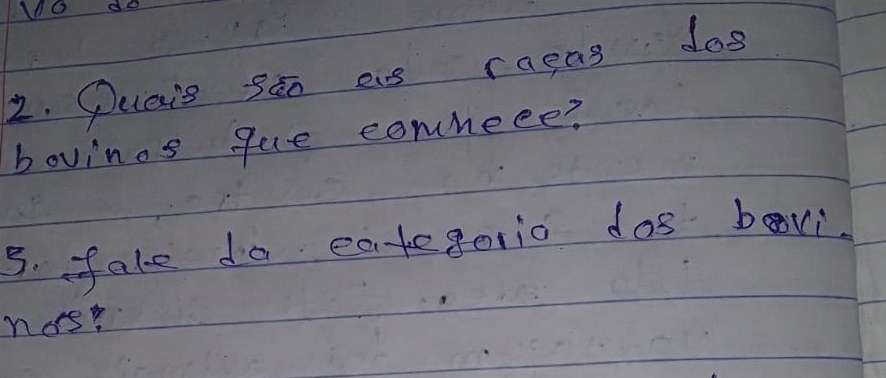 do
2. Quais são as raças dos
bovinos que conhece?
3. fale da categoria dos bovi-
nos?